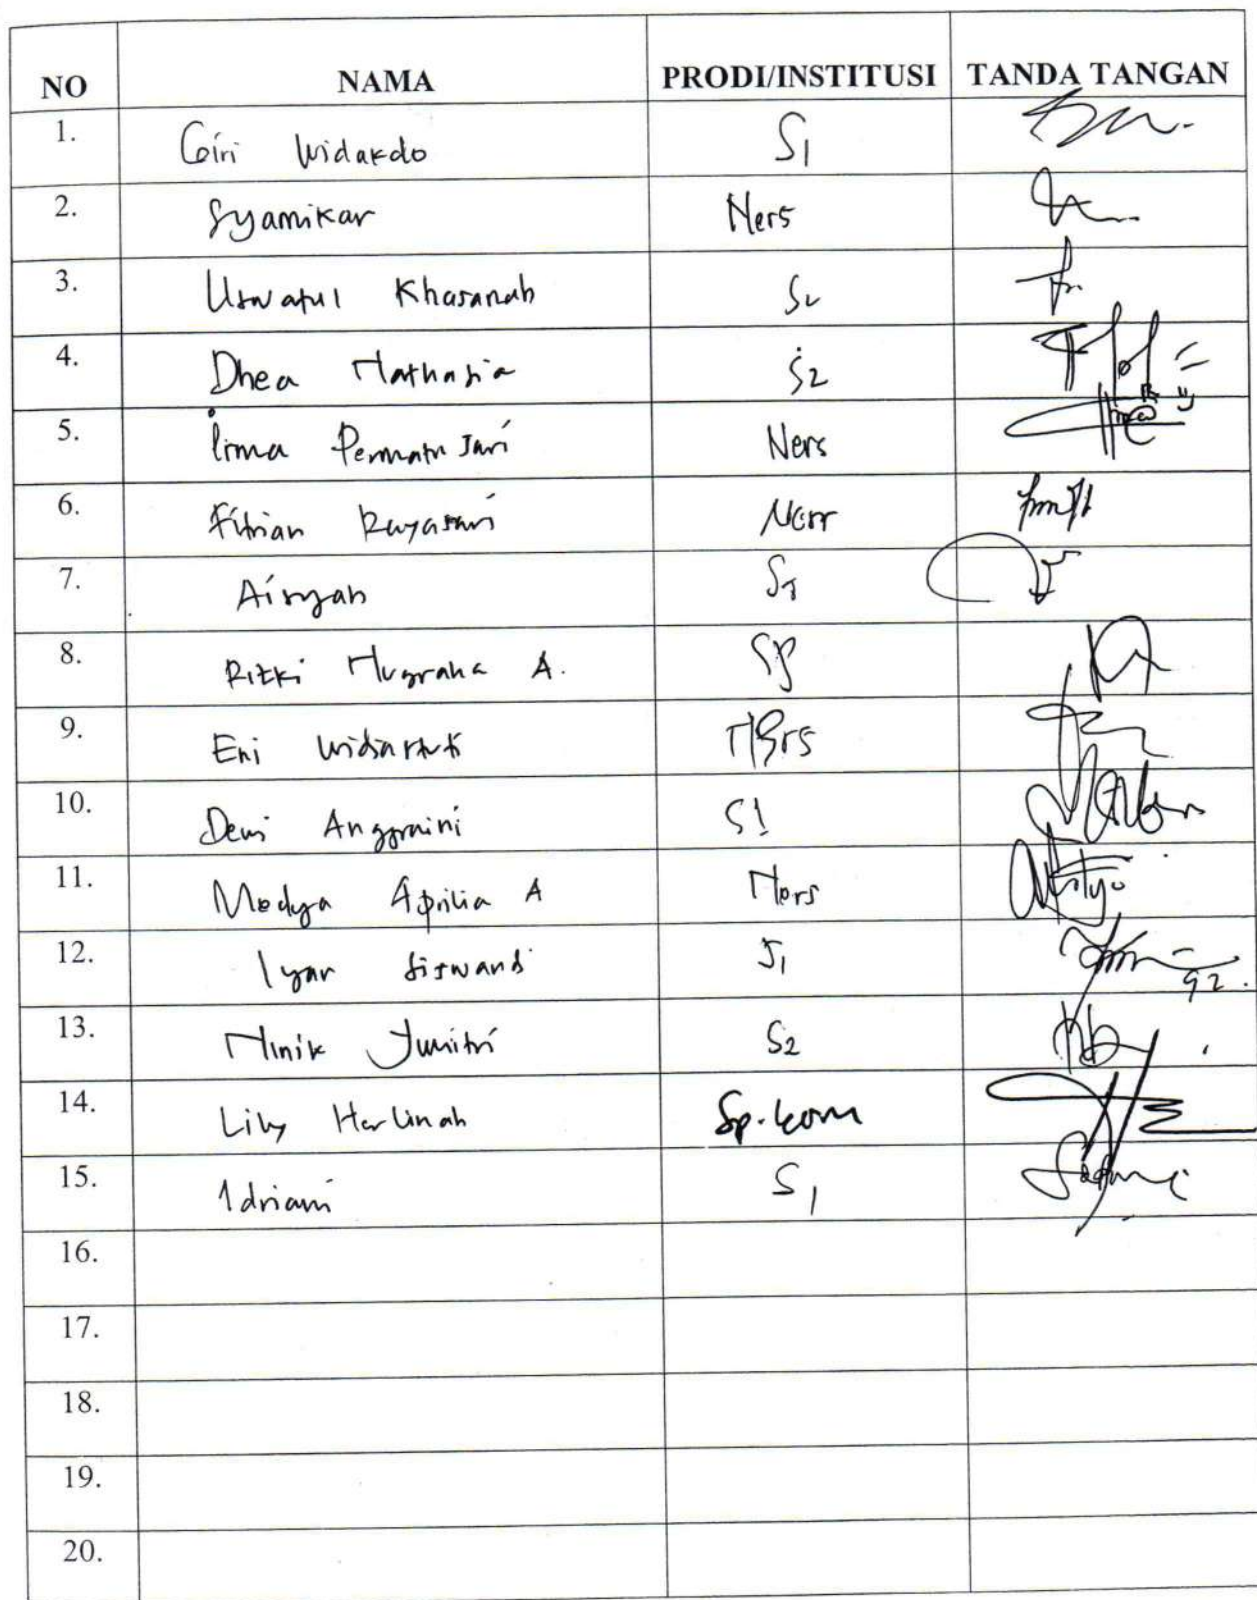 NO NAMA PRODI/INSTITUSI TANDA TANGAN
1. Giri Widakdo S1
2. Syamikar Ners
3. Uswatul Khasanah S2
4. Dhea Nathasia S2
5. Irma Permata Sari Ners
6. Fitrian Rayasari Ners
7. Aisyah
8. Rizki Nugraha A.
9. Eni Widiastuti Ners
10. Dewi Anggraini S1
11. Medya Aprilia A Ners
12. Iyar Siswandi S1
13. Ninik Yunitri S2
14. Lily Herlinah Sp.kom
15. Idriani S1
16.
17.
18.
19.
20.